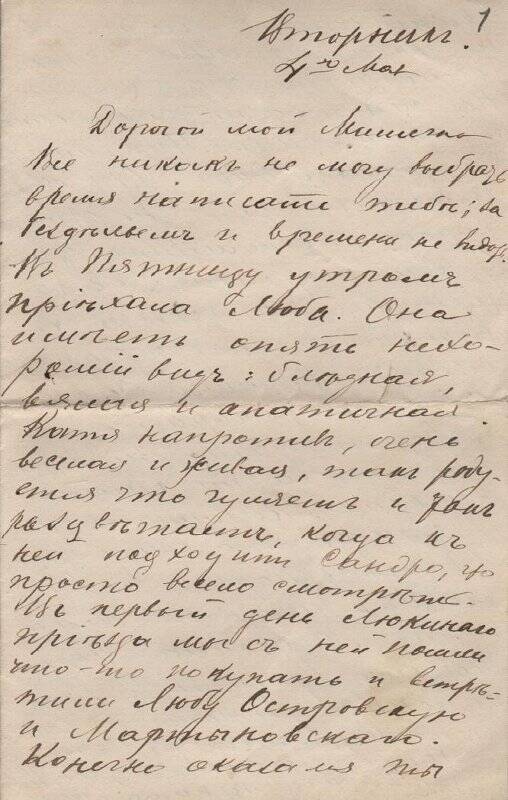 1
Вторникъ.
4го Мая
Дорогой мой
Все никакъ не могу выбрать
время написать тебѣ; за
бездѣльемъ и времени не видать.
Въ Пятницу утромъ
пріѣхала Люба. Она
имѣетъ опять нехо-
рошій видъ: блѣдная,
вялая и апатичная.
Катя напротивъ, очень
веселая и живая, такъ раду-
ется что гуляетъ и такъ
разцвѣтаетъ, когда къ
ней подходитъ Сандро, что
просто весело смотрѣть.
Въ первый день Любинаго
пріѣзда мы съ ней пошли
что-то покупать и встрѣ-
тили Любу Островскую
и Мартыновскаго.
Конечно